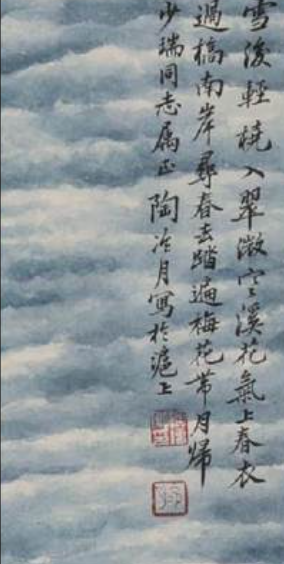 雪後輕橈入翠微空溪花氣上春衣
過橋南岸尋春去踏遍梅花帶月歸
少瑞同志属正陶冷月寫於滬上